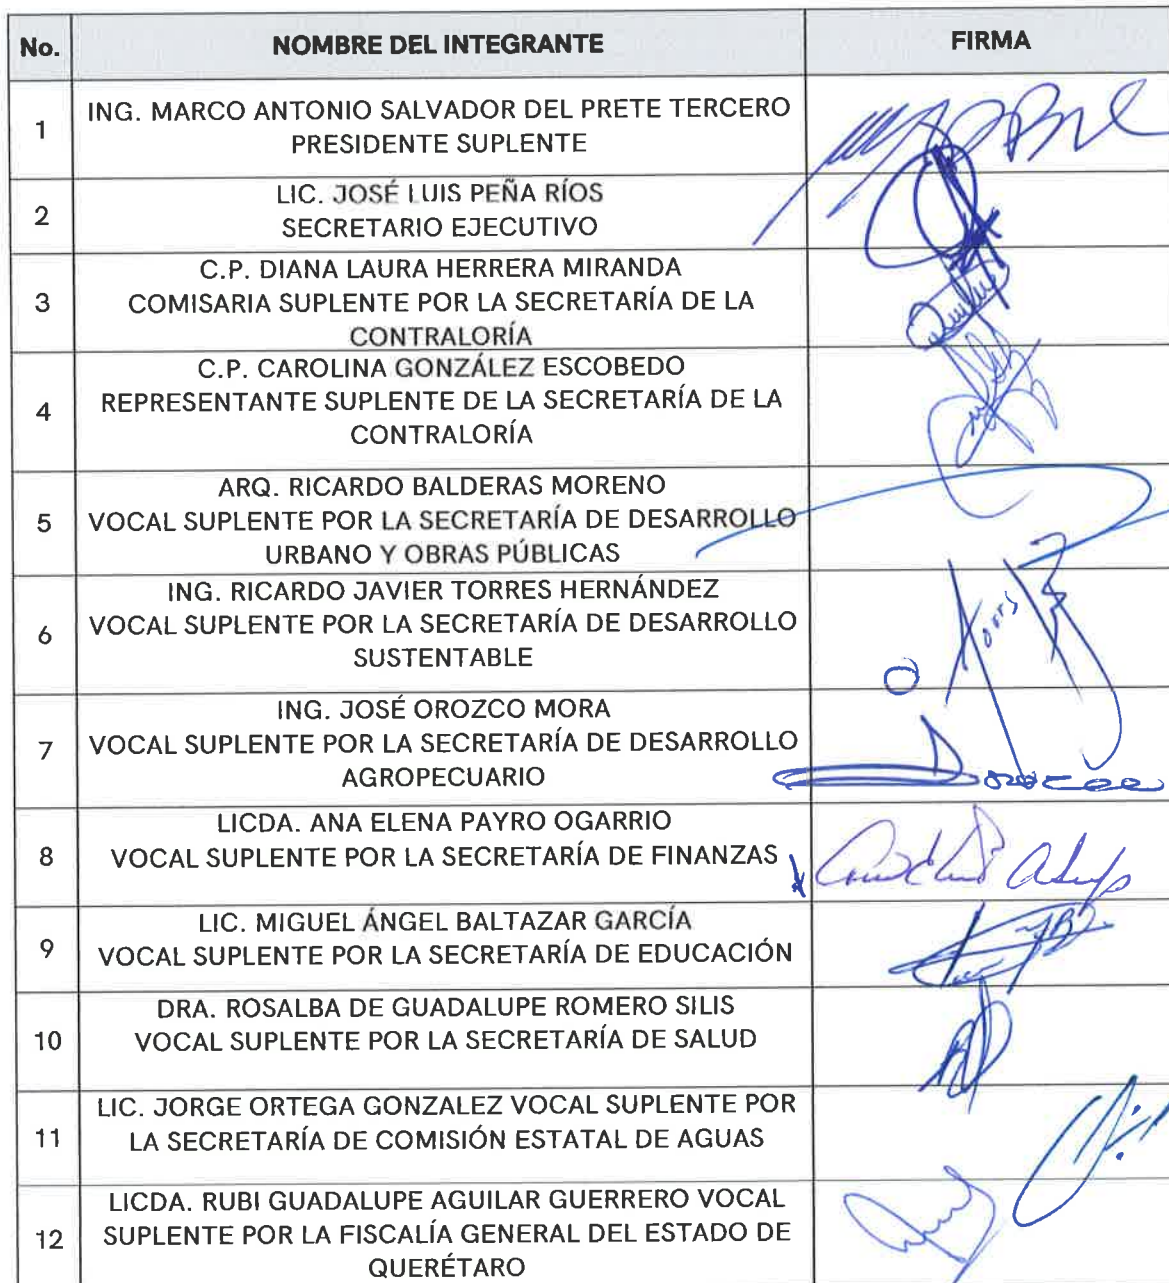 No. NOMBRE DEL INTEGRANTE FIRMA
1 ING. MARCO ANTONIO SALVADOR DEL PRETE TERCERO
PRESIDENTE SUPLENTE
2 LIC. JOSÉ LUIS PEÑA RÍOS
SECRETARIO EJECUTIVO
3 C.P. DIANA LAURA HERRERA MIRANDA
COMISARIA SUPLENTE POR LA SECRETARÍA DE LA
CONTRALORÍA
4 C.P. CAROLINA GONZÁLEZ ESCOBEDO
REPRESENTANTE SUPLENTE DE LA SECRETARÍA DE LA
CONTRALORÍA
5 ARQ. RICARDO BALDERAS MORENO
VOCAL SUPLENTE POR LA SECRETARÍA DE DESARROLLO
URBANO Y OBRAS PÚBLICAS
6 ING. RICARDO JAVIER TORRES HERNÁNDEZ
VOCAL SUPLENTE POR LA SECRETARÍA DE DESARROLLO
SUSTENTABLE
7 ING. JOSÉ OROZCO MORA
VOCAL SUPLENTE POR LA SECRETARÍA DE DESARROLLO
AGROPECUARIO
8 LICDA. ANA ELENA PAYRO OGARRIO
VOCAL SUPLENTE POR LA SECRETARÍA DE FINANZAS
9 LIC. MIGUEL ÁNGEL BALTAZAR GARCÍA
VOCAL SUPLENTE POR LA SECRETARÍA DE EDUCACIÓN
10 DRA. ROSALBA DE GUADALUPE ROMERO SILIS
VOCAL SUPLENTE POR LA SECRETARÍA DE SALUD
11 LIC. JORGE ORTEGA GONZALEZ VOCAL SUPLENTE POR
LA SECRETARÍA DE COMISIÓN ESTATAL DE AGUAS
12 LICDA. RUBI GUADALUPE AGUILAR GUERRERO VOCAL
SUPLENTE POR LA FISCALÍA GENERAL DEL ESTADO DE
QUERÉTARO